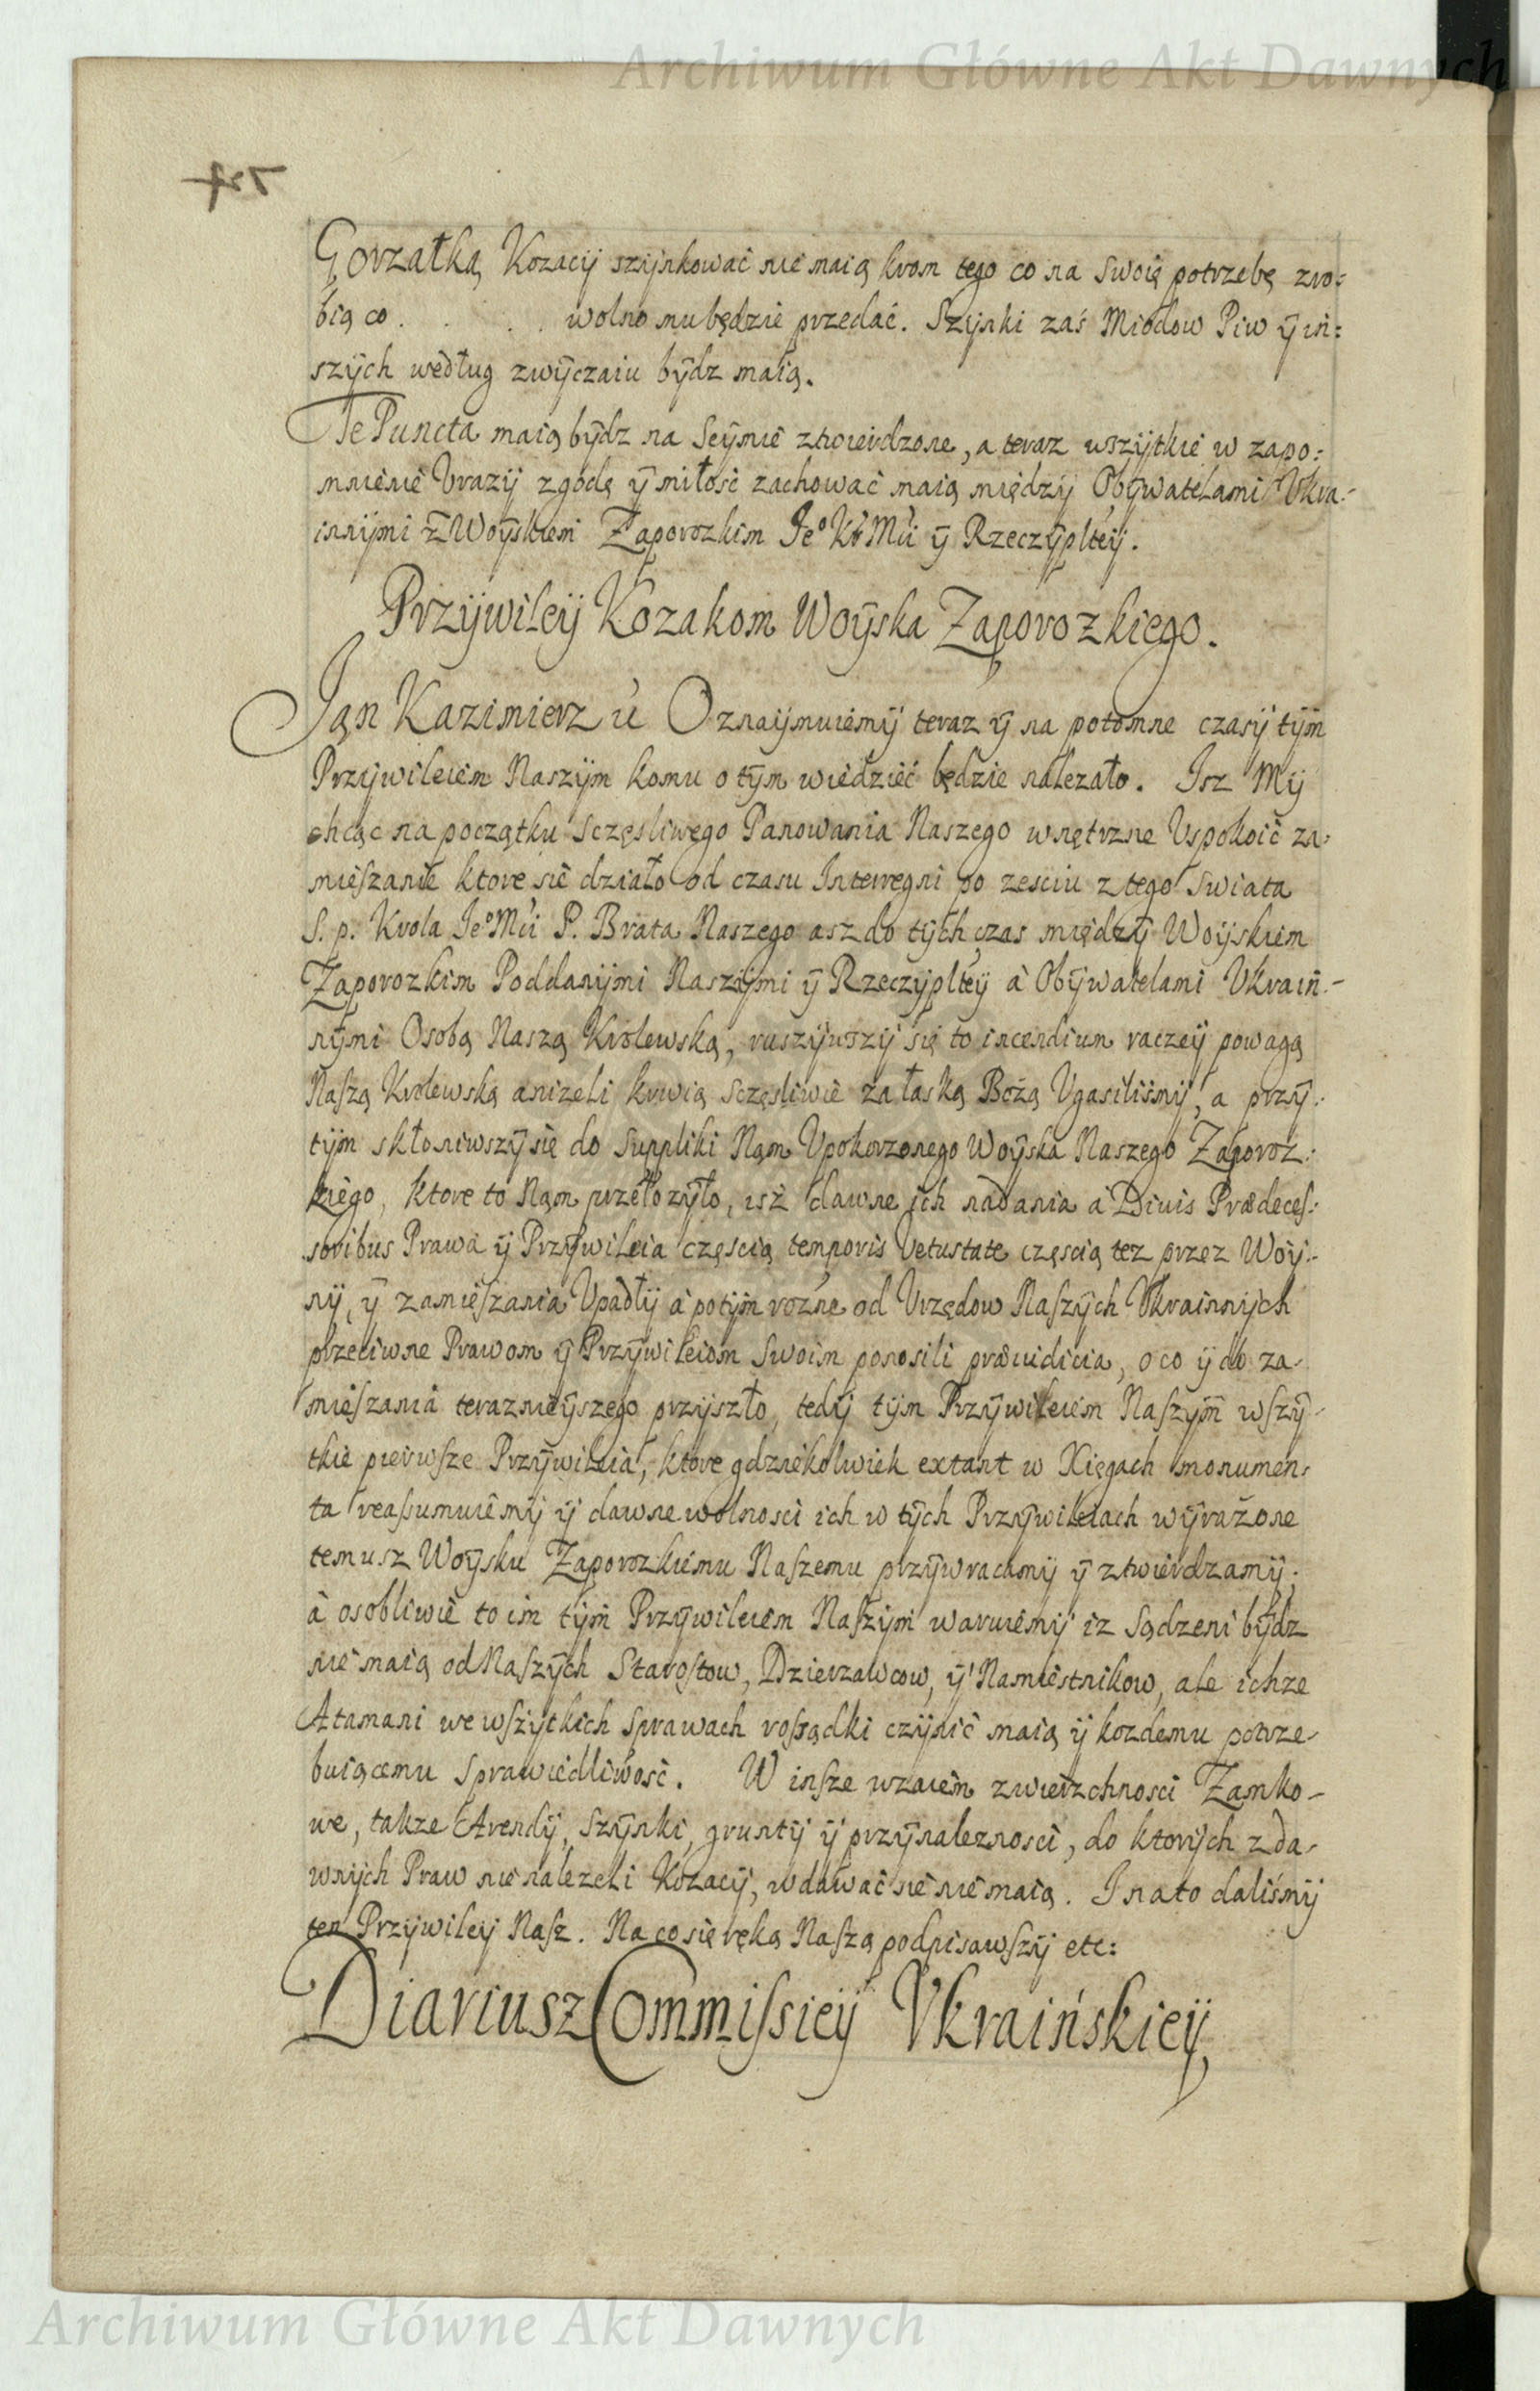 Archiwum Główne Akt Dawnych
Gorzałką Kozacÿ szÿnkować nie maią krom tego co na swoię potrzebę zro:
bią co . . . . wolno mu będzie przedać. Szÿnki zaś Miodow Piw ÿ in:
szÿch według zwÿczaiu bÿdz maią.
Te Puncta maią bÿdz na Seÿmie ztwierdzone, a teraz wszÿtkie w zapo:
mnienie Vrazÿ zgodę ÿ miłosc zachować maią międzÿ Obÿwatelami Vkra-
innÿmi z Woÿskiem Zaporozkim Jeº Kr Mci ÿ Rzeczÿplteÿ.
Przÿwileÿ Kozakom Woÿska Zaporozkiego.
Jan Kazimierz &c Oznaÿmuiemÿ teraz ÿ na potomne czasÿ tÿm
Przÿwileiem Naszÿm komu o tÿm wiedzieć będzie nalezało. Isz Mÿ
chcąc na początku sczęsliwego Panowania Naszego wnętrzne Vspokoić za-
mieszanie ktore sie działo od czasu Interregni po zesciu z tego swiata
S. p. Krola Jeº Mci P. Brata Naszego asz do tÿch czas międzÿ Woÿskiem
Zaporozkim Poddanÿmi Naszÿmi ÿ Rzeczÿpltey à Obÿwatelami Vkrain-
nÿmi Osobą Naszą Krolewską, ruszÿwszÿ się to incendium raczeÿ powagą
Naszą Krolewską anizeli krwią sczęsliwie za łaską Bożą Vgasiliśmÿ, a przÿ:
tÿm skłoniwszÿ się do suppliki Nam Vpokorzonego Woÿska Naszego Zaporoz:
kiego, ktore to Nam przełozÿło, isż dawne ich nadania a Diuis Prædeces:
soribus Prawa ÿ Przÿwileia częscią temporis Vetustate częscią tez przez Woÿ-
nÿ, ÿ zamieszania Vpadłÿ à potÿm rozne od Vrzędow Naszÿch Vkrainnÿch
przeciwne Prawom ÿ Przÿwileiom Swoim ponosili præiudicia, o co ÿ do za-
mieszania teraznieÿszego przÿszło, tedÿ tÿm Przÿwileiem Naszÿm wszÿ-
tkie pierwsze Przÿwileia, ktore gdziekolwiek extant w Xięgach monumen-
ta reassumuiemÿ ÿ dawne wolnosci ich w tÿch Przÿwileiach wÿrażone
temusz Woÿsku Zaporozkiemu Naszemu przÿwracamÿ ÿ ztwierdzamÿ;
à osobliwie to im tÿm Przÿwileiem Naszÿm waruiemÿ iz sądzeni bÿdz
nie maią od Naszÿch Starostow, Dzierzawcow, ÿ Namiestnikow, ale ichze
Atamani we wszÿtkich sprawach rossądki czÿnić maią ÿ kozdemu potrze-
buiącemu sprawiedliwosć. W insze wzaiem zwierzchnosci Zamko-
we, takze Arendÿ, szÿnki, gruntÿ ÿ przÿnaleznosci, do ktorÿch z da-
wnÿch Praw nie nalezeli Kozacÿ, wdawać sie nie maią. I na to daliśmÿ
ten Przÿwileÿ Nasz. Na co się ręką Naszą podpisawszÿ etc:
Diariusz Commissieÿ Vkraińskieÿ,
Archiwum Główne Akt Dawnych